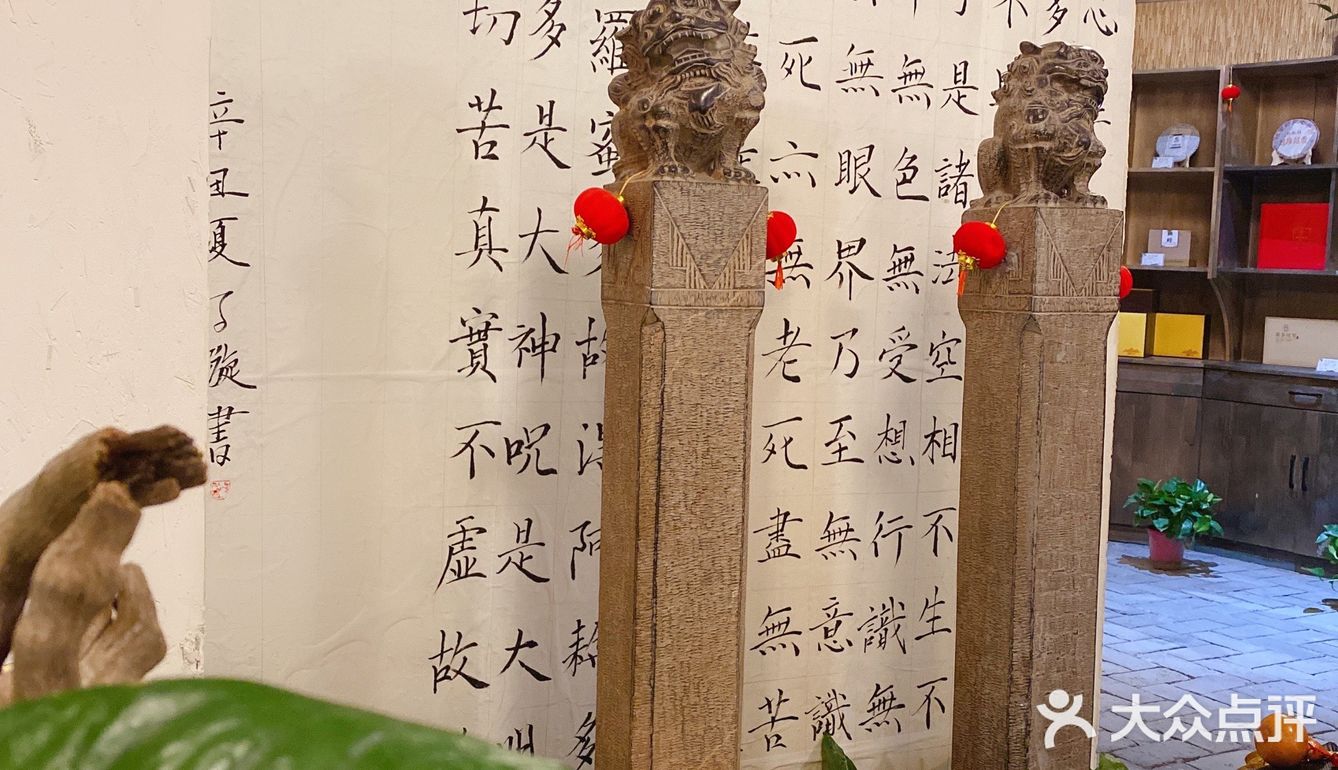 心
多
不
是諸法空相不生不
無色無受想行識無
無眼界乃至無意識
死亦無老死盡無苦
羅蜜多故得阿耨多
多是大神呪是大明
切苦真實不虛故
辛丑夏子璇書
大众点评